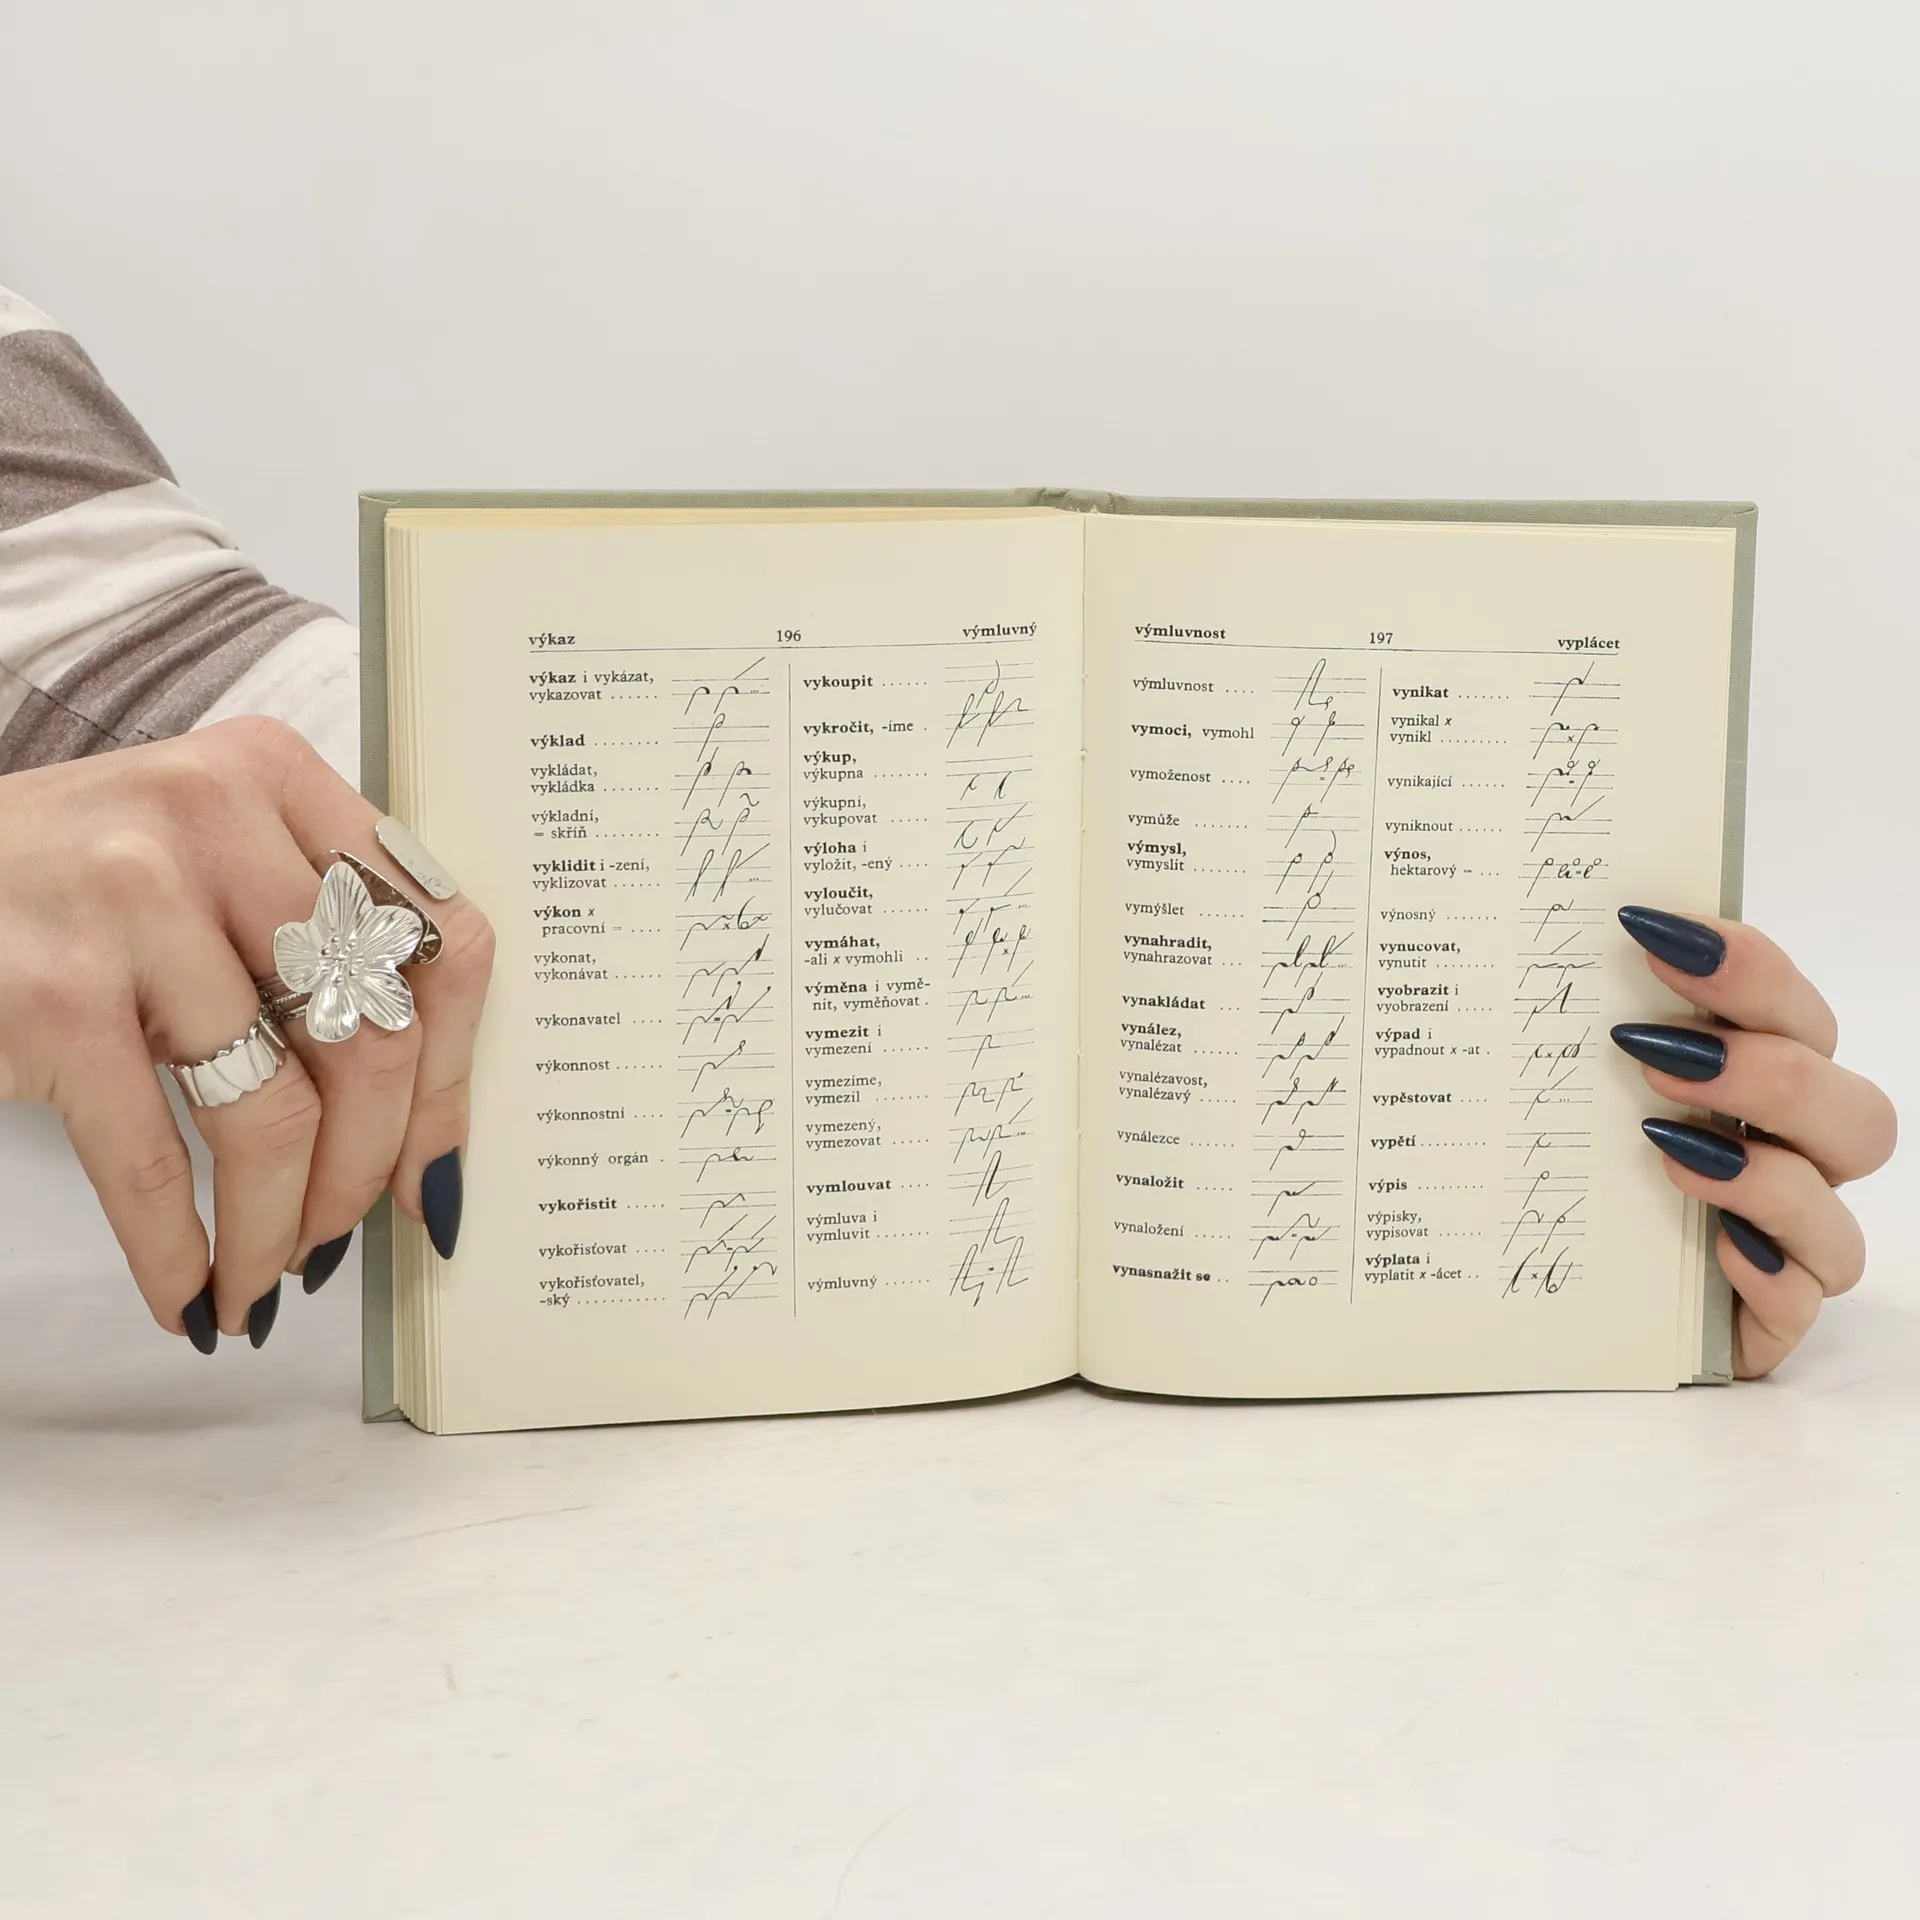 výkaz 196 výmluvný
výkaz i vykázat,
vykazovat ......
výklad ........
vykládat,
vykládka .......
výkladní,
= skříň ........
vyklidit i -zení,
vyklizovat ......
výkon x
pracovní = ....
vykonat,
vykonávat ......
vykonavatel ....
výkonnost ......
výkonnostní ....
výkonný orgán .
vykořistit .....
vykořisťovat ....
vykořisťovatel,
-ský ...........
vykoupit ......
vykročit, -íme .
výkup,
výkupna .......
výkupní,
vykupovat .....
výloha i
vyložit, -ený ....
vyloučit,
vylučovat ......
vymáhat,
-ali x vymohli ..
výměna i vymě-
nit, vyměňovat .
vymezit i
vymezení ......
vymezíme,
vymezil .......
vymezený,
vymezovat .....
vymlouvat ....
výmluva i
vymluvit .......
výmluvný ......
výmluvnost 197 vyplácet
výmluvnost ....
vymoci, vymohl
vymoženost ....
vymůže .......
výmysl,
vymyslit ......
vymýšlet ......
vynahradit,
vynahrazovat ...
vynakládat ...
vynález,
vynalézat ......
vynalézavost,
vynalézavý .....
vynálezce ......
vynaložit .....
vynaložení .....
vynasnažit se ..
vynikat .......
vynikal x
vynikl .........
vynikající ......
vyniknout ......
výnos,
hektarový = ...
výnosný .......
vynucovat,
vynutit ........
vyobrazit i
vyobrazení .....
výpad i
vypadnout x -at .
vypěstovat ....
vypětí .........
výpis .........
výpisky,
vypisovat ......
výplata i
vyplatit x -ácet ..